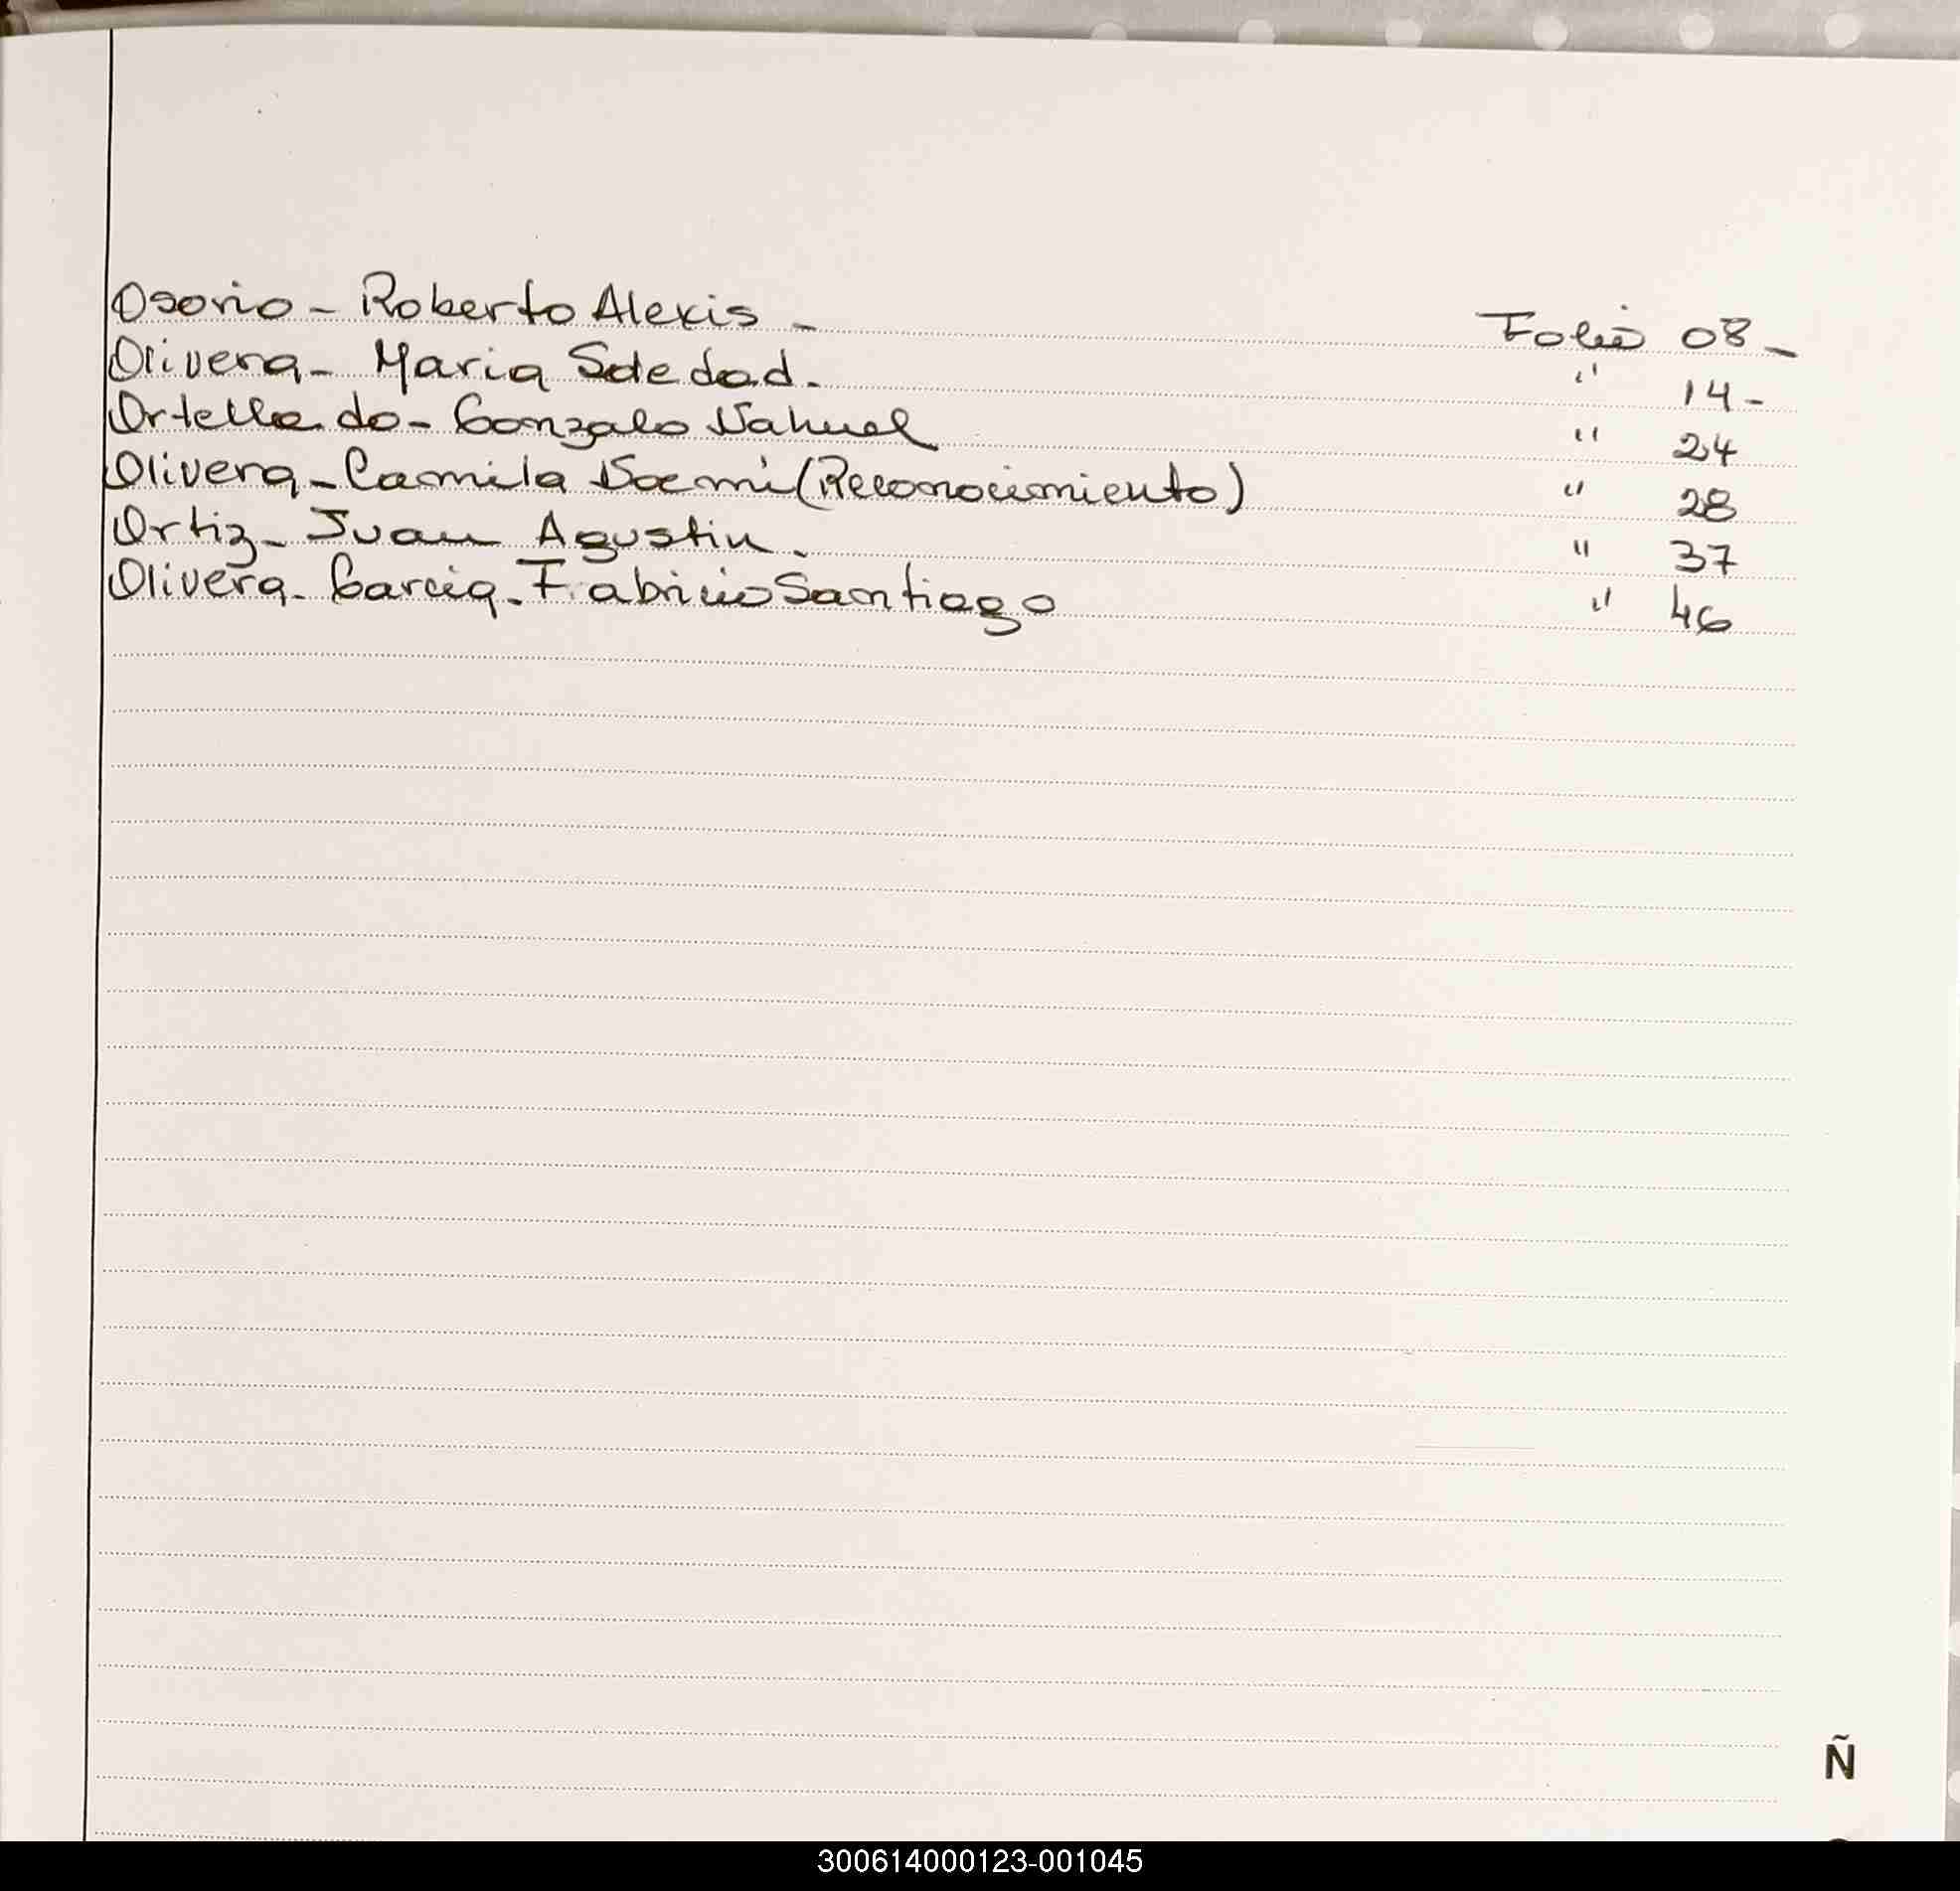 Osorio - Roberto Alexis - Folio 08 -
Olivera - Maria Soledad. " 14 -
Ortellado - Gonzalo Nahuel " 24
Olivera - Camila Noemí (Reconocimiento) " 28
Ortiz - Juan Agustin. " 37
Olivera - Garcia - Fabricio Santiago " 46
Ñ
300614000123-001045